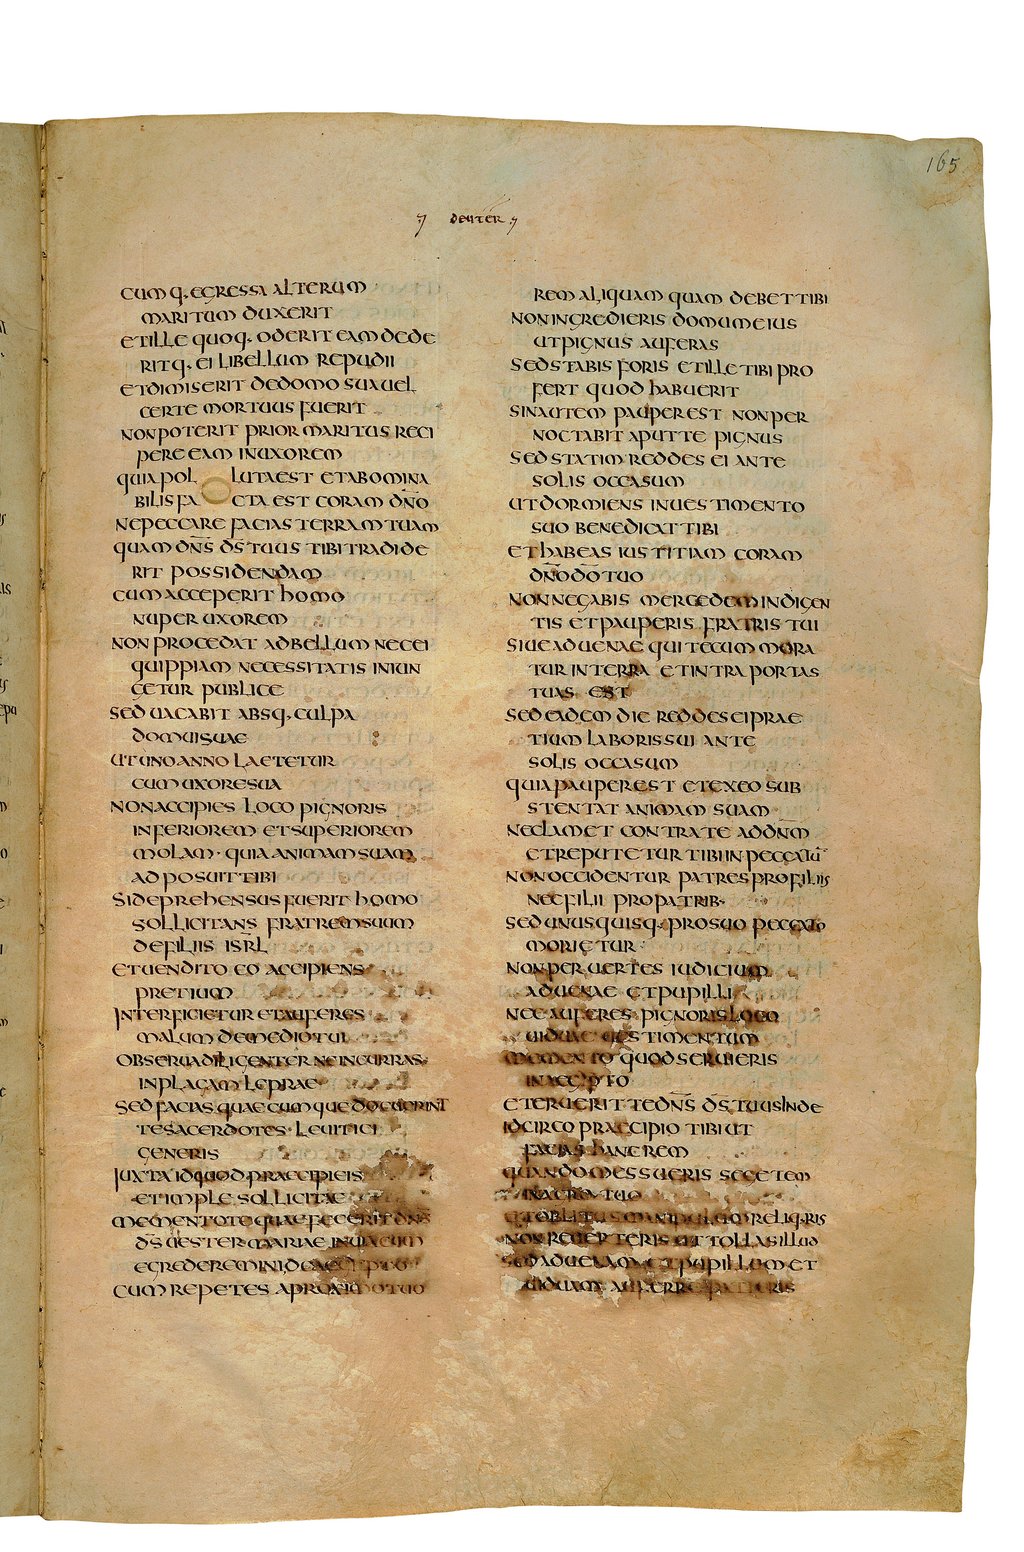 165
deuter
cumq· egressa alterum
maritum duxerit
et ille quoq· oderit eam dede
ritq· ei libellum repudii
et dimiserit de domo sua uel
certe mortuus fuerit
non poterit prior maritus reci
pere eam in uxorem
quia pol luta est et abomina
bilis fa cta est coram dn̄o
ne peccare facias terram tuam
quam dn̄s ds̄ tuus tibi tradide
rit possidendam
cum acceperit homo
nuper uxorem
non procedat ad bellum nec ei
quippiam necessitatis iniun
getur publice
sed uacabit absq· culpa
domui suae
ut uno anno laetetur
cum uxore sua
non accipies loco pignoris
inferiorem et superiorem
molam· quia animam suam
adposuit tibi
si deprehensus fuerit homo
sollicitans fratrem suum
de filiis isrl̄
et uendito eo accipiens
pretium
interficietur et auferes
malum de medio tui
obserua diligenter ne incurras
in plagam leprae
sed facias quaecumque docuerint
te sacerdotes leuitici
generis
iuxta id quod praecipi eis
et imple sollicitae
mementote quae fecerit dn̄s
ds̄ uester mariae in uia cum
egrederemini de aegipto
cum repetes a proximo tuo
rem aliquam quam debet tibi
non ingredieris domum eius
ut pignus auferas
sed stabis foris et ille tibi pro
fert quod habuerit
sin autem pauper est non per
noctabit aput te pignus
sed statim reddes ei ante
solis occasum
ut dormiens in uestimento
suo benedicat tibi
et habeas iustitiam coram
dn̄o dō tuo
non negabis mercedem indigen
tis et pauperis fratris tui
siue aduenae qui tecum mora
tur in terra et intra portas
tuas est
sed eadem die reddes ei prae
tium laboris sui ante
solis occasum
quia pauper est et ex eo sub
stentat animam suam
ne clamet contra te ad dn̄m
et reputetur tibi in peccatū
non occidentur patres pro filiis
nec filii pro patrib·
sed unusquisq· pro suo peccato
morietur
non peruertes iudicium
aduenae et pupilli
nec auferes pignoris loco
uiduae uestimentum
memento quod seruieris
in aegypto
et eruerit te dn̄s ds̄ tuus inde
idcirco praecipio tibi ut
facias hanc rem
quando messueris segetem
in agro tuo
et oblitus manipulum reliq·ris
non reuerteris ut tollas illud
sed aduenam et pupillum et
uiduam auferre patieris